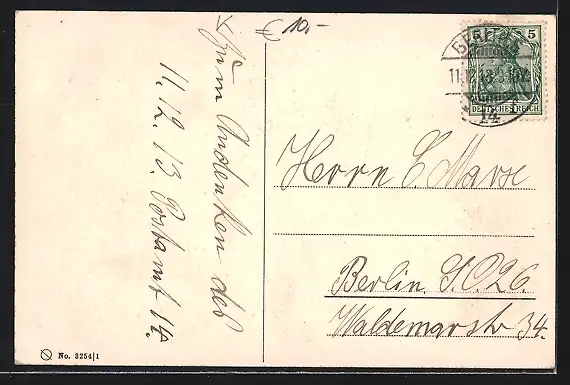 € 10.-
Zum Andenken des
11.12.13. Postamt 14.
5 5
DEUTSCHES REICH
14
Herrn C. Marse
Berlin S.O.26.
Waldemarstr 34.
No. 3254/1